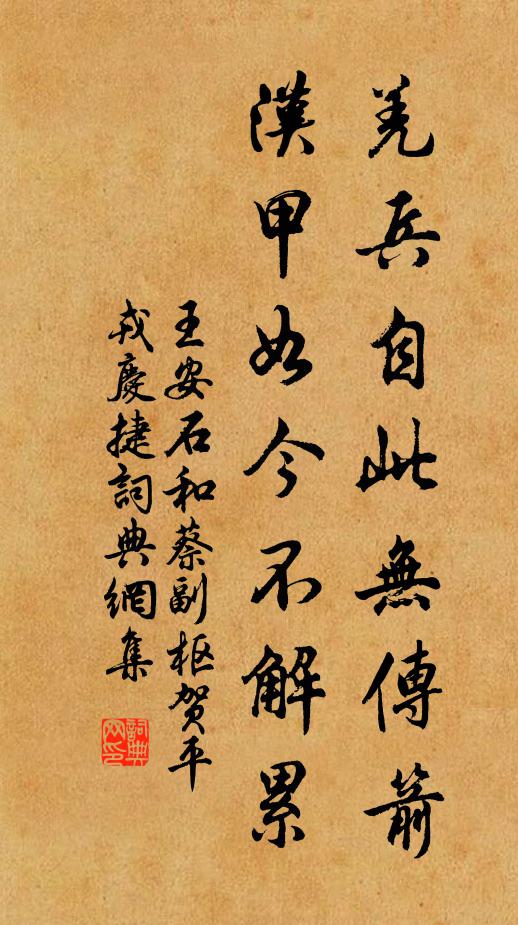 羌兵自此無傳箭
漢甲如今不解累
王安石和蔡副枢贺平
戎慶捷詞典網集
詞典
网印